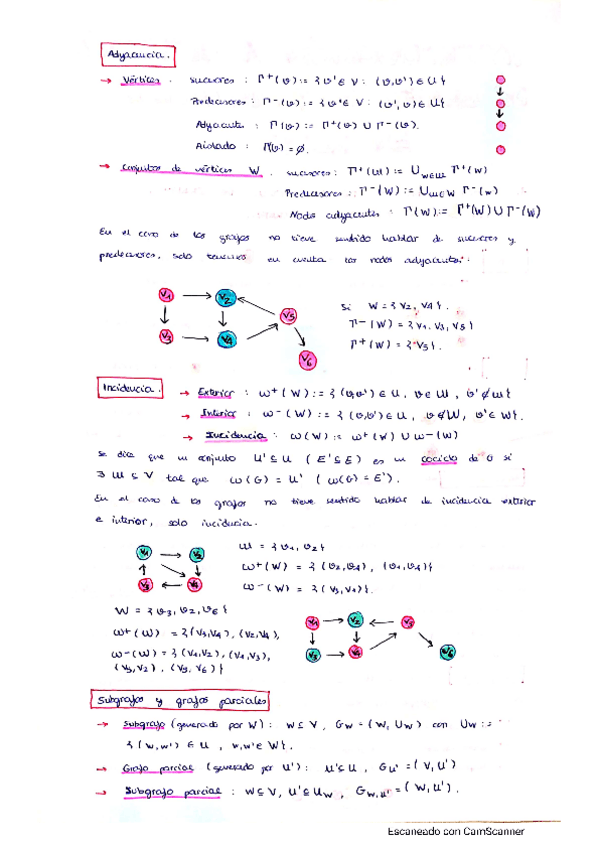 Adyacencia.
→ Vértices. sucesores: Γ+(v) := {v'∈ V: (v,v') ∈ U}
Predecesores: Γ-(v) := {v'∈ V: (v',v) ∈ U}
Adyacente: Γ(v) := Γ+(v) ∪ Γ-(v).
Aislado: Γ(v) = ∅.
→ Conjuntos de vértices W. sucesores: Γ+(W) := ∪w∈W Γ+(w)
Predecesores: Γ-(W) := ∪w∈W Γ-(w)
Nodos adyacentes: Γ(W) := Γ+(W) ∪ Γ-(W)
En el caso de los grafos no tiene sentido hablar de sucesores y
predecesores, solo tenemos en cuenta los nodos adyacentes.
V1 V2 V5
V3 V4
V6
Si W = {V2, V4}.
Γ-(W) = {V1, V3, V5}
Γ+(W) = {V5}.
Incidencia.
→ Exterior: ω+(W) := {(v,v') ∈ U, v∈W, v'∉W}
→ Interior: ω-(W) := {(v,v') ∈ U, v∉W, v'∈W}.
→ Incidencia: ω(W) := ω+(W) ∪ ω-(W)
Se dice que un conjunto U'⊆U (E'⊆E) es un cociclo de G si
∃ W ⊆ V tal que ω(G) = U' (ω(G) = E').
En el caso de los grafos no tiene sentido hablar de incidencia exterior
e interior, solo incidencia.
V1 V2
V3 V4
W = {v1, v2}
ω+(W) = {(v2,v4), (v1,v4)}
ω-(W) = {(v3,v1)}.
W = {v3, v2, v6}
ω+(W) = {(v3,v4), (v2,v4),
ω-(W) = {(v1,v2), (v1,v3),
(v5,v2), (v5,v6)}
V1 V2 V5
V3 V4 V6
Subgrafos y grafos parciales
→ Subgrafo (generado por W): W⊆V, GW = (W, UW) con UW :=
{(w,w') ∈ U, w,w'∈ W}.
→ Grafo parcial (generado por U'): U'⊆U, GU' = (V, U')
→ Subgrafo parcial: W⊆V, U'⊆UW, GW,U' = (W, U').
Escaneado con CamScanner